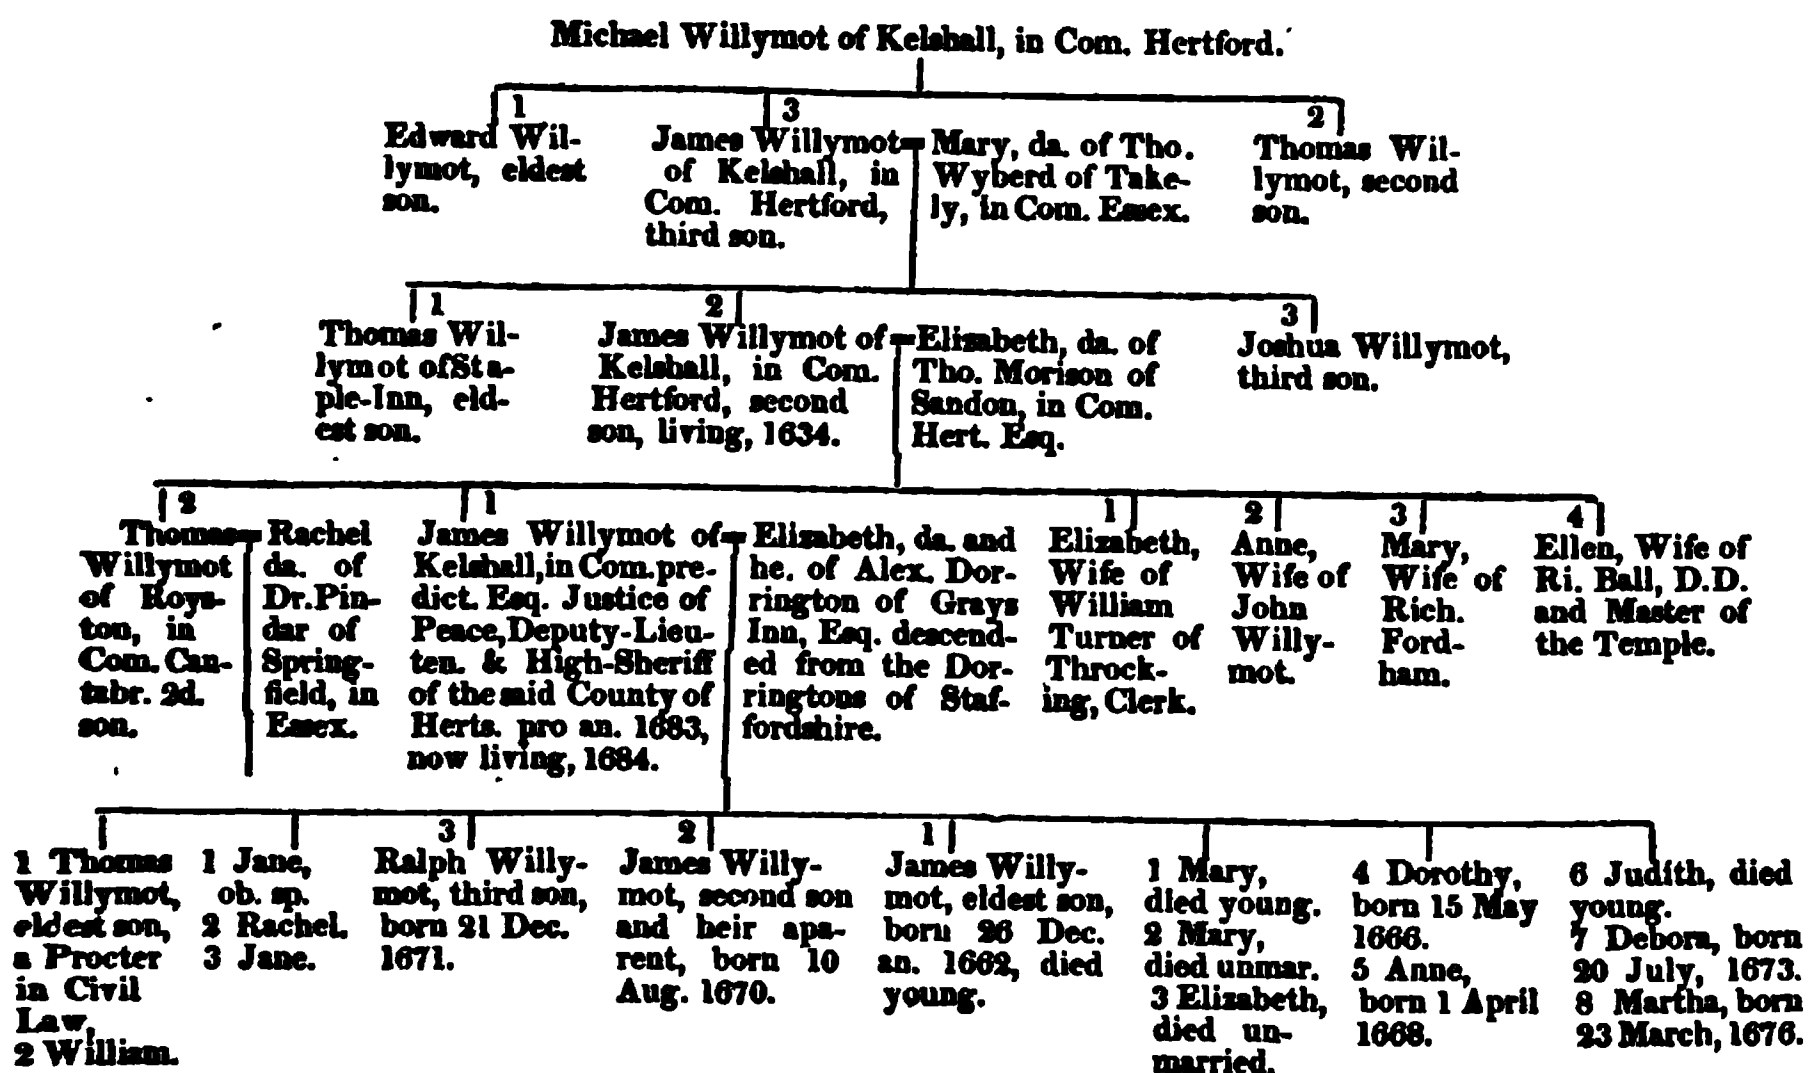 Michael Willymot of Kelshall, in Com. Hertford.
1
Edward Wil-
lymot, eldest
son.
3
James Willymot
of Kelshall, in
Com. Hertford,
third son.
Mary, da. of Tho.
Wyberd of Take-
ly, in Com. Essex.
2
Thomas Wil-
lymot, second
son.
1
Thomas Wil-
lymot of Sta-
ple-Inn, eld-
est son.
2
James Willymot of
Kelshall, in Com.
Hertford, second
son, living, 1634.
Elizabeth, da. of
Tho. Morison of
Sandon, in Com.
Hert. Esq.
3
Joshua Willymot,
third son.
2
Thomas
Willymot
of Roys-
ton, in
Com. Can-
tabr. 2d.
son.
Rachel
da. of
Dr. Pin-
dar of
Spring-
field, in
Essex.
1
James Willymot of
Kelshall, in Com. pre-
dict. Esq. Justice of
Peace, Deputy-Lieu-
ten. & High-Sheriff
of the said County of
Herts. pro an. 1683,
now living, 1684.
Elizabeth, da. and
he. of Alex. Dor-
rington of Grays
Inn, Esq. descend-
ed from the Dor-
ringtons of Staf-
fordshire.
1
Elizabeth,
Wife of
William
Turner of
Throck-
ing, Clerk.
2
Anne,
Wife of
John
Willy-
mot.
3
Mary,
Wife of
Rich.
Ford-
ham.
4
Ellen, Wife of
Ri. Ball, D.D.
and Master of
the Temple.
1 Thomas
Willymot,
eldest son,
a Procter
in Civil
Law,
2 William.
1 Jane,
ob. sp.
2 Rachel.
3 Jane.
3
Ralph Willy-
mot, third son,
born 21 Dec.
1671.
2
James Willy-
mot, second son
and heir apa-
rent, born 10
Aug. 1670.
1
James Willy-
mot, eldest son,
born 26 Dec.
an. 1662, died
young.
1 Mary,
died young.
2 Mary,
died unmar.
3 Elizabeth,
died un-
married.
4 Dorothy,
born 15 May
1666.
5 Anne,
born 1 April
1668.
6 Judith, died
young.
7 Debora, born
20 July, 1673.
8 Martha, born
23 March, 1676.